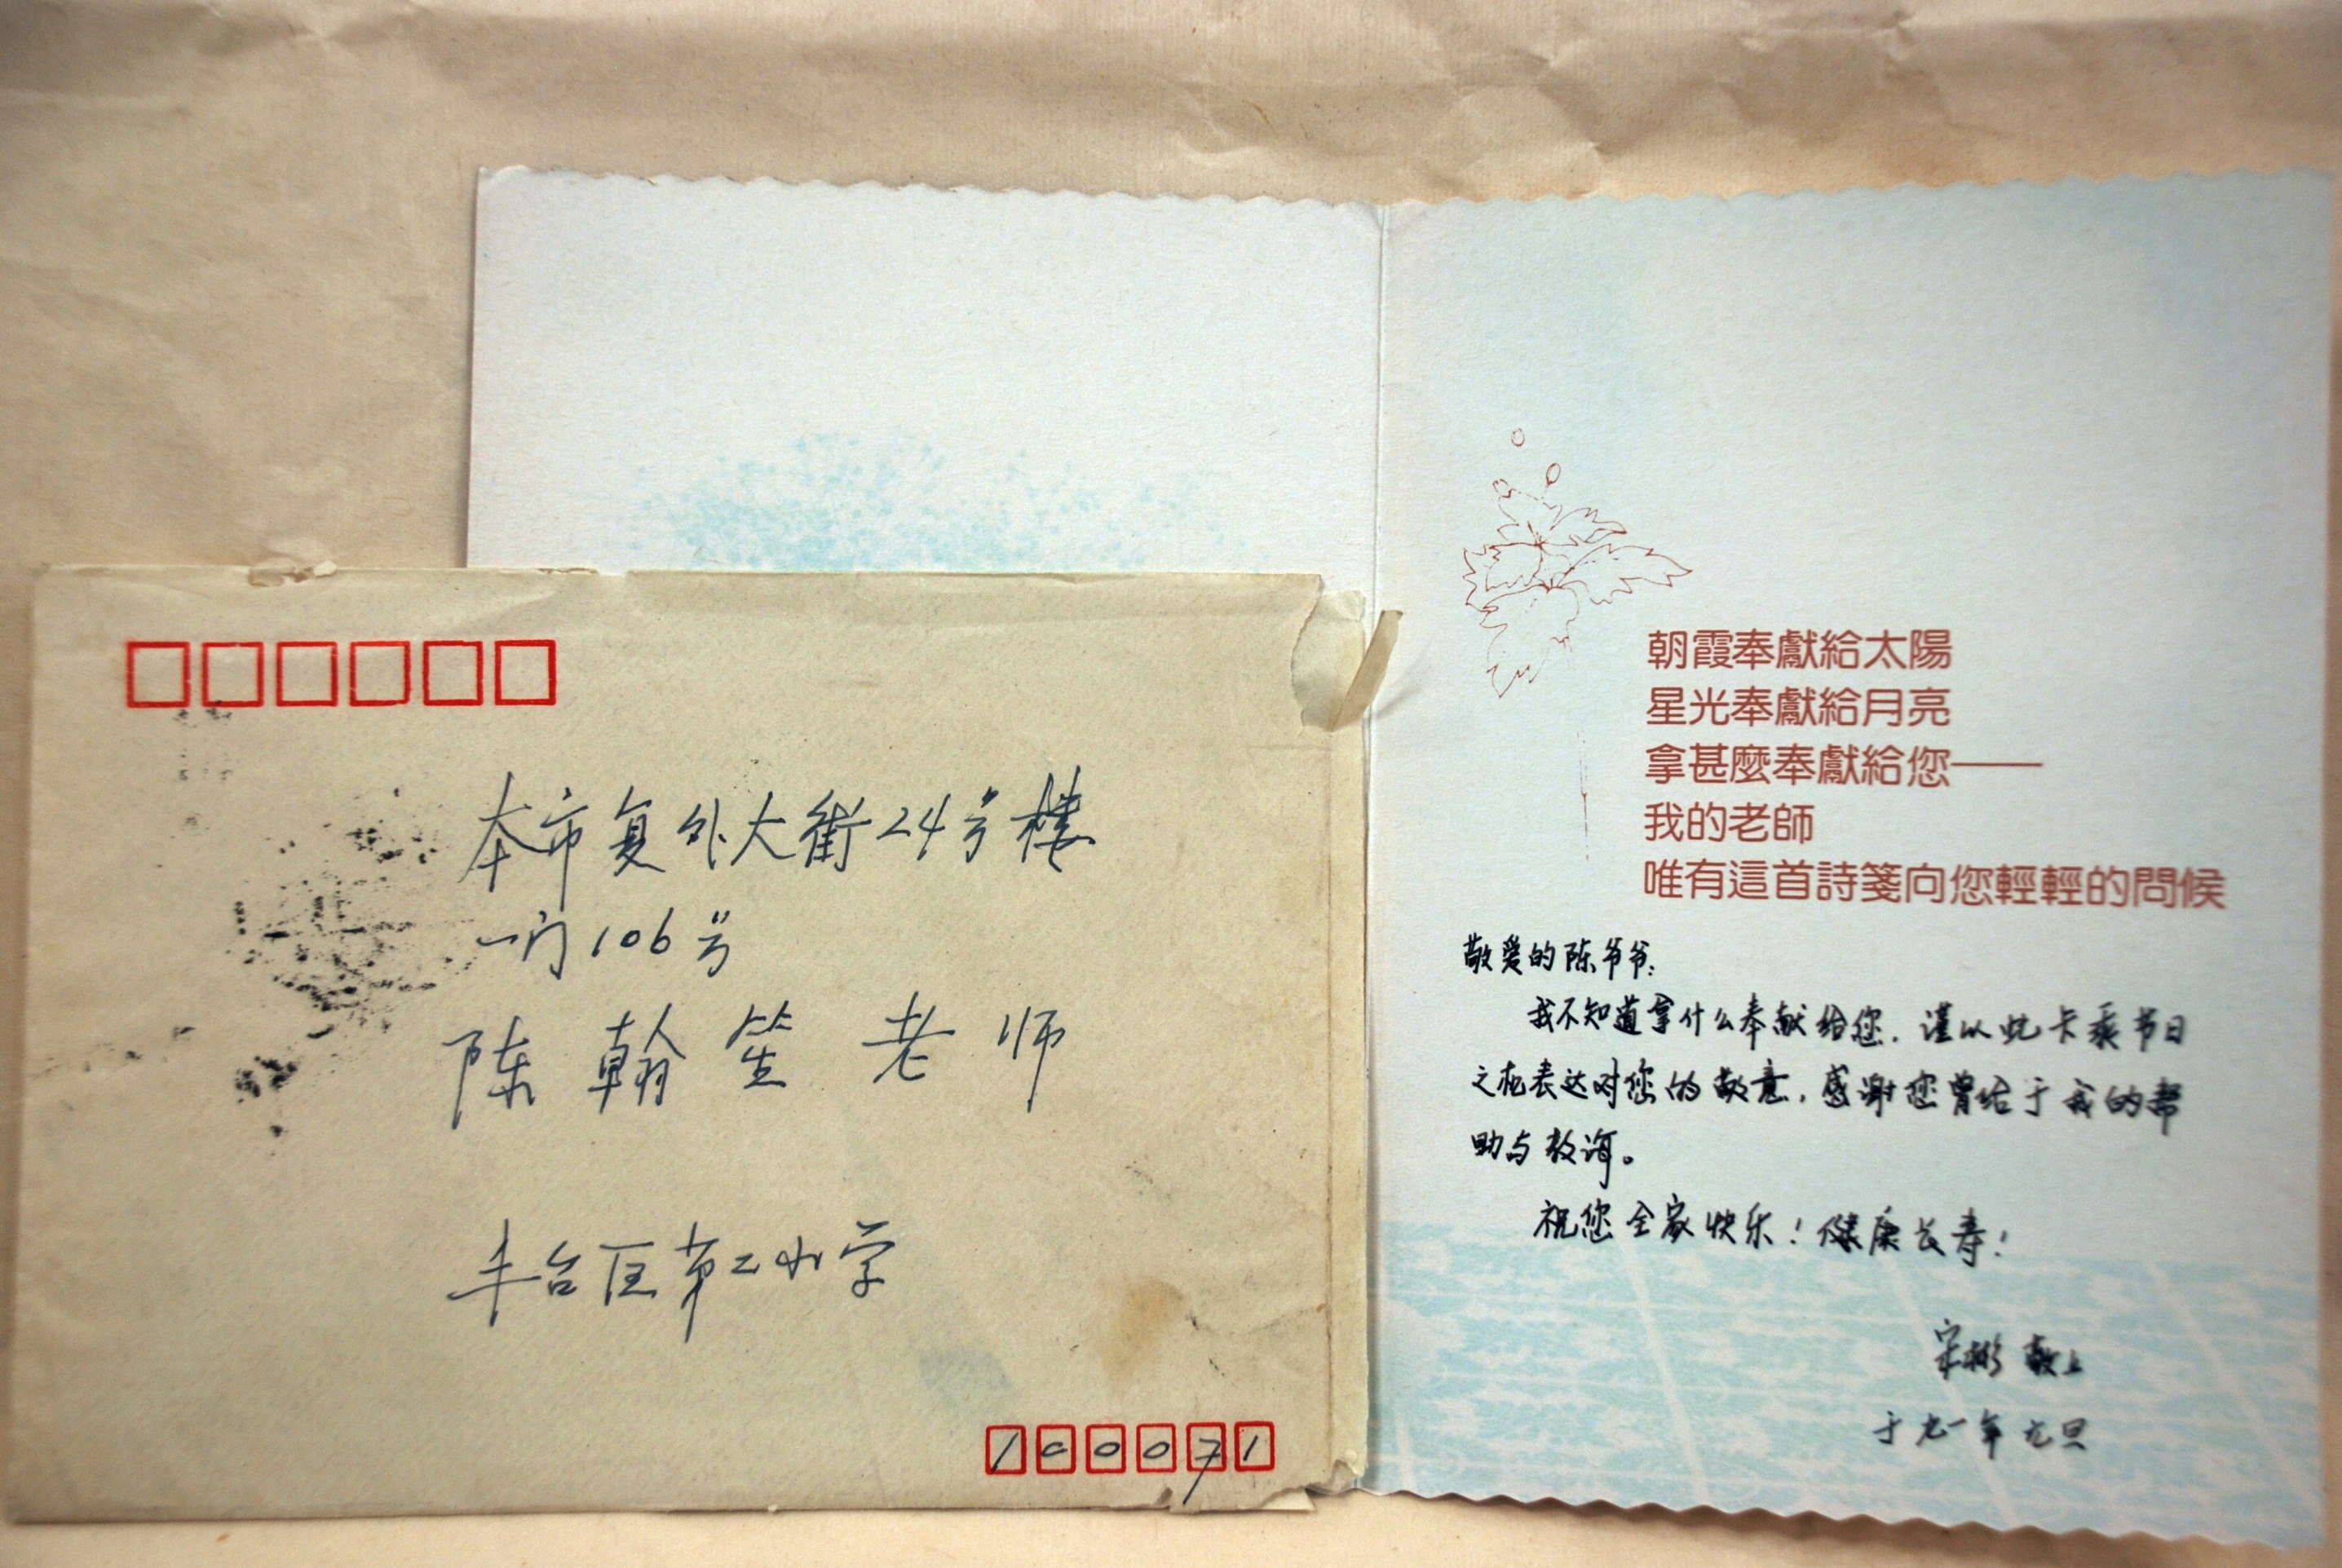 本市复外大街24号楼
一门106号
陈翰笙老师
丰台区第二小学
100071
朝霞奉獻給太陽
星光奉獻給月亮
拿甚麼奉獻給您——
我的老師
唯有這首詩箋向您輕輕的問候
敬爱的陈爷爷:
我不知道拿什么奉献给您,谨以此卡乘节日
之机表达对您的敬意,感谢您曾给于我的帮
助与教诲。
祝您全家快乐!健康长寿!
宋彬 敬上
于九一年元旦